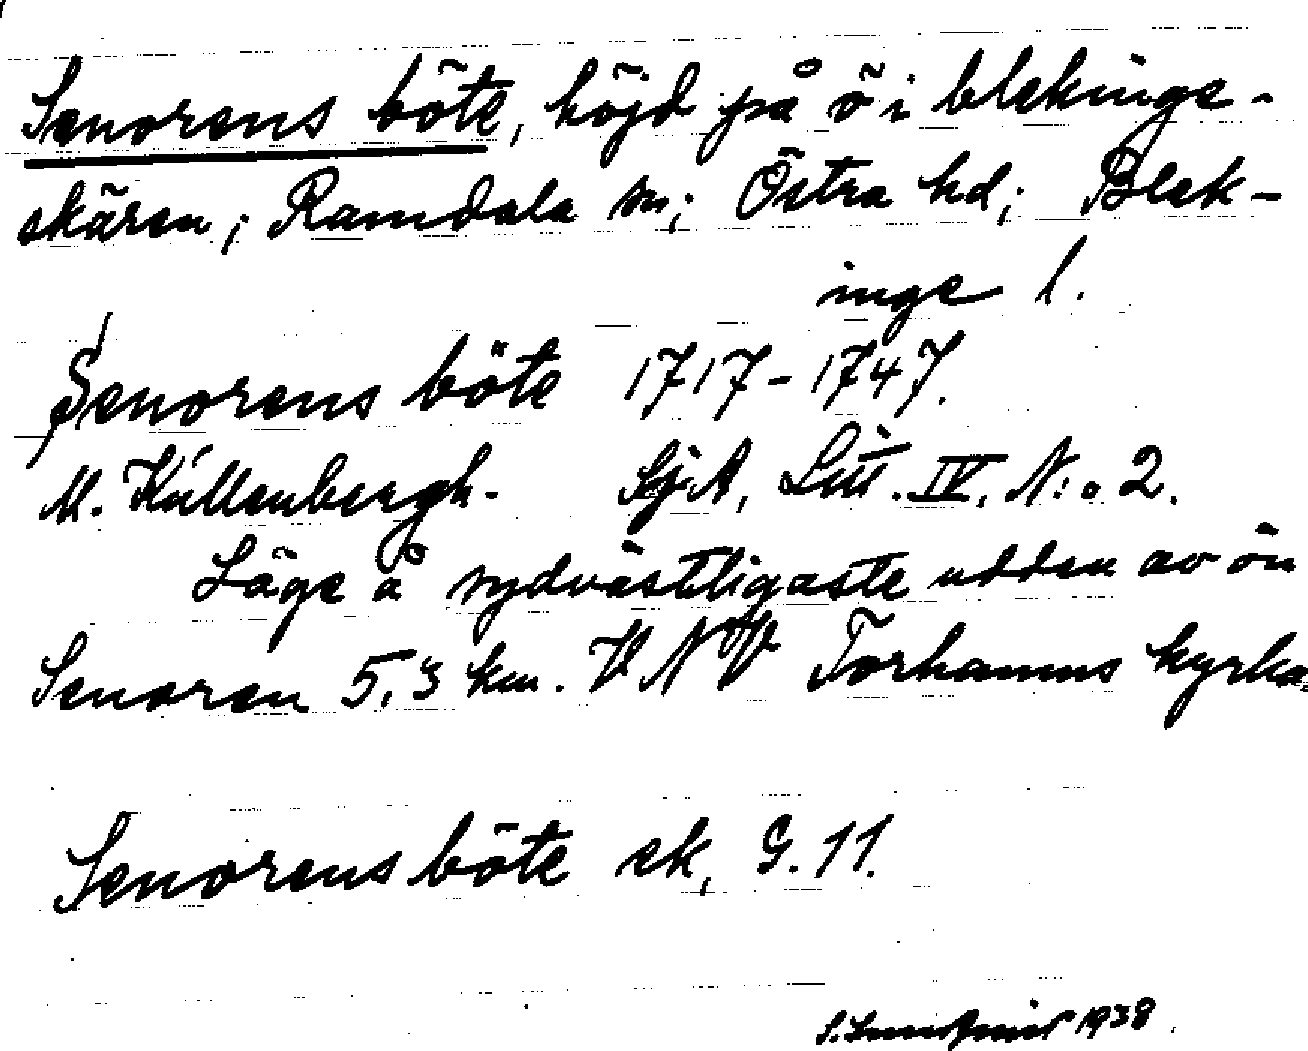 Senorens böte, höjd på ö i blekinge-
skären; Ramdala sn; Östra hd; Blek-
inge l.
Senorens böte 1717-1747.
M. Kullenbergh. SjA, Litt. IV. N:o 2.
Läge å sydvästligaste udden av ön
Senoren 5,3 km. VNV Torhamns kyrka.
Senorens böte ek, G. 11.
1938